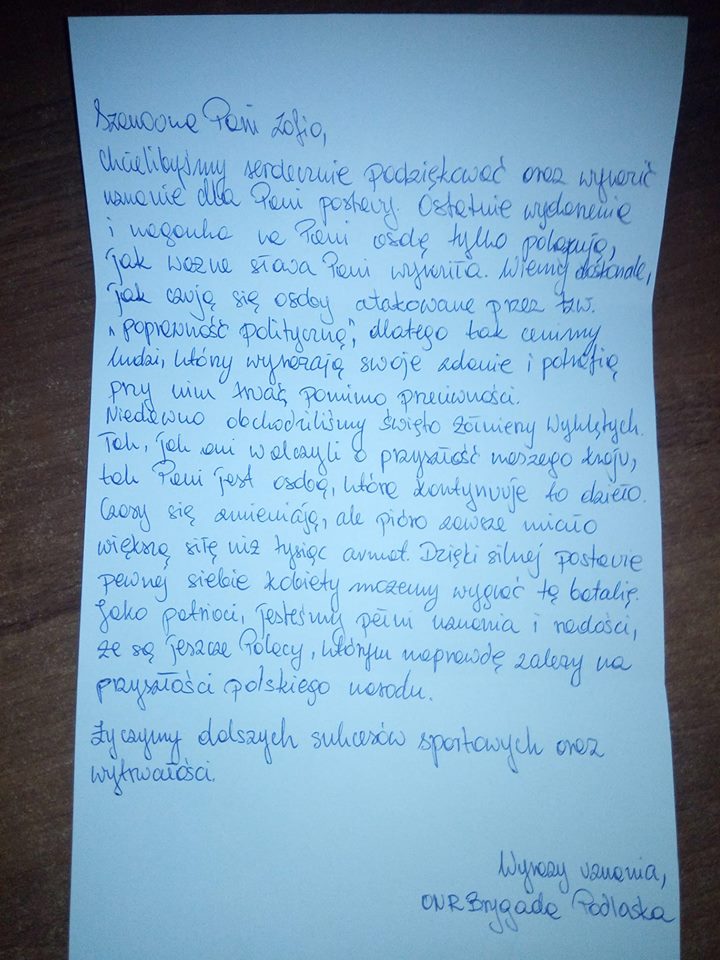 Szanowna Pani Zofio,
chcielibyśmy serdecznie podziękować oraz wyrazić
uznanie dla Pani postawy. Ostatnie wydarzenia
i nagonka na Pani osobę tylko pokazują,
jak ważne słowa Pani wyraziła. Wiemy doskonale,
jak czują się osoby atakowane przez tzw.
"poprawność polityczną", dlatego tak cenimy
ludzi, którzy wyrażają swoje zdanie i potrafią
przy nim trwać pomimo przeciwności.
Niedawno obchodziliśmy święto Żołnierzy Wyklętych.
Tak, jak oni walczyli o przyszłość naszego kraju,
tak Pani jest osobą, która kontynuuje to dzieło.
Czasy się zmieniają, ale pióro zawsze miało
większą siłę niż tysiąc armat. Dzięki silnej postawie
pewnej siebie kobiety możemy wygrać tę batalię.
Jako patrioci, jesteśmy pełni uznania i radości,
że są jeszcze Polacy, którym naprawdę zależy na
przyszłości polskiego narodu.
Życzymy dalszych sukcesów sportowych oraz
wytrwałości.
Wyrazy uznania,
ONR Brygada Podlaska